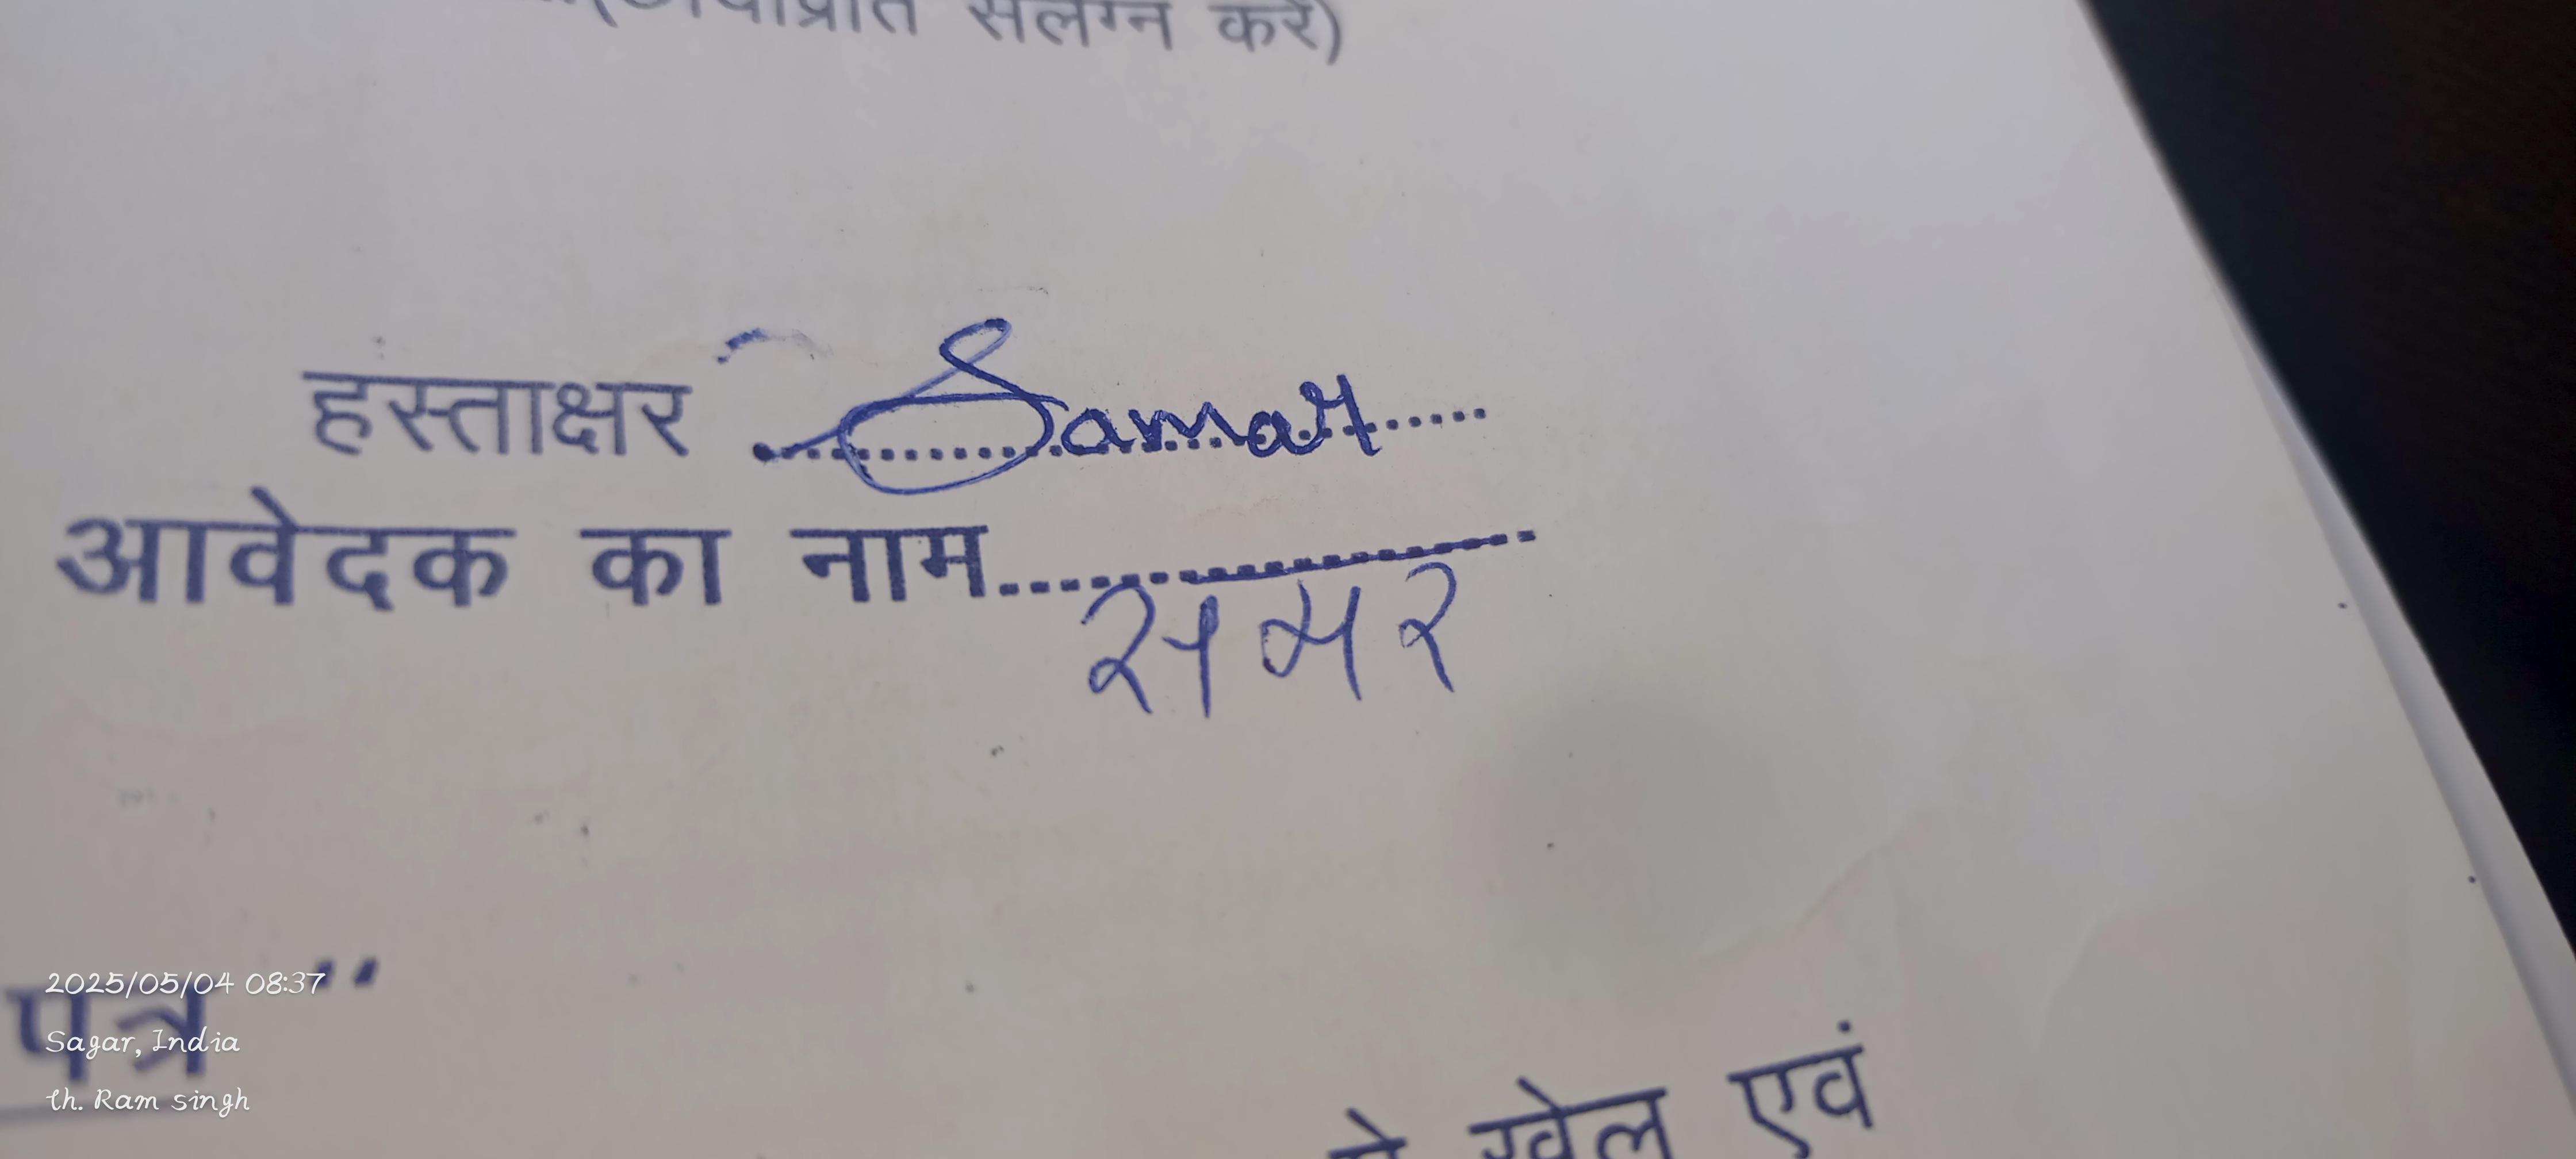 सलग्न करें)
हस्ताक्षर Samar
आवेदक का नाम
समर
पत्र"
2025/05/04 08:37
Sagar, India
th. Ram singh
खेल एवं